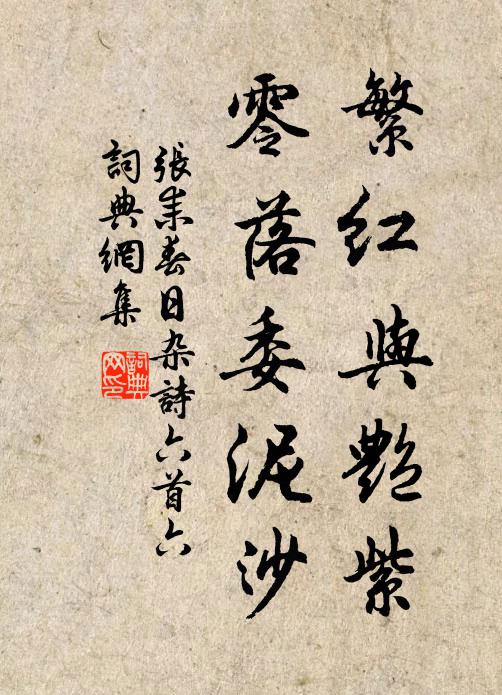 繁紅與艷紫
零落委泥沙
張耒春日杂詩六首六
詞典網集
詞典網印